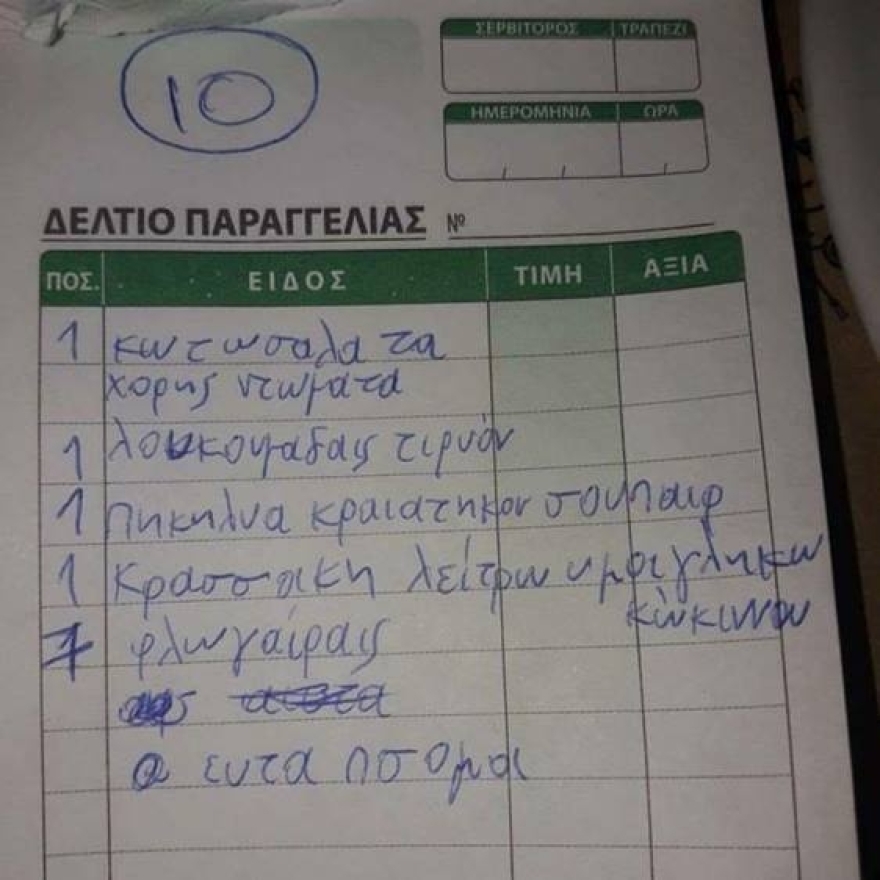 10
ΣΕΡΒΙΤΟΡΟΣ ΤΡΑΠΕΖΙ
ΗΜΕΡΟΜΗΝΙΑ ΩΡΑ
ΔΕΛΤΙΟ ΠΑΡΑΓΓΕΛΙΑΣ №
ΠΟΣ. ΕΙΔΟΣ ΤΙΜΗ ΑΞΙΑ
1 κωτωσαλα τα
χορης ντωματα
1 λουκουμαδαις τιρυόν
1 πηκηλνα κραιατηκον σουπαιρ
1 Κρασσακη λείτρω ημφιγληκω
κώκινον
7 φλωγαίραις
ευτα πσομαι